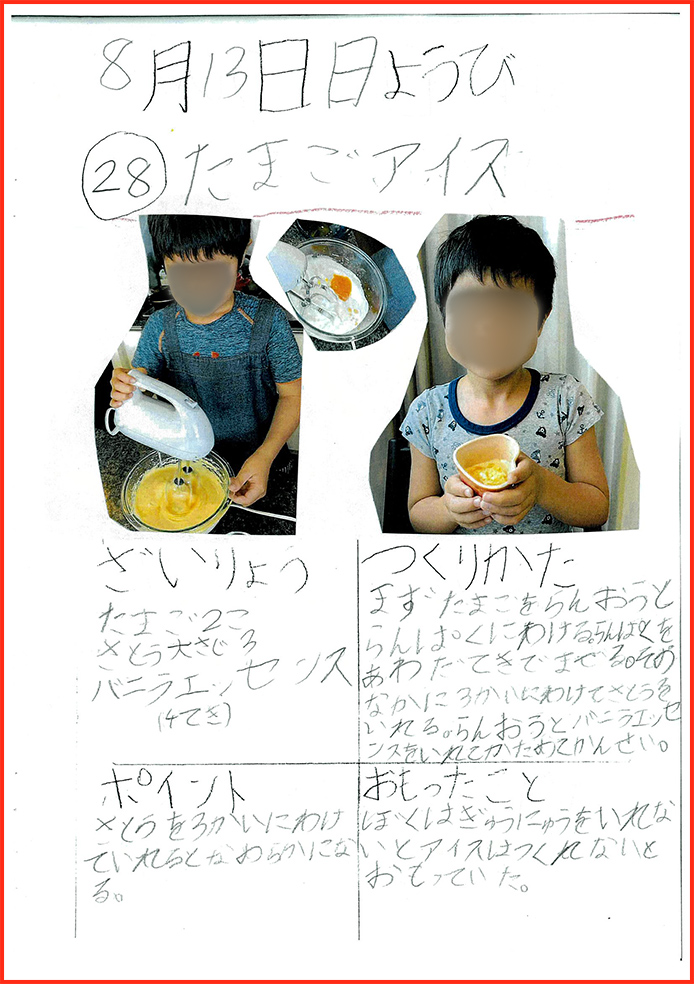 8月13日日ようび
28 たまごアイス
ざいりょう
たまご2こ
さとう大さじ3
バニラエッセンス
(4てき)
つくりかた
まずたまごをらんおうと
らんぱくにわける。らんぱくを
あわだてきでまぜる。その
なかに3かいにわけてさとうを
いれる。らんおうとバニラエッセ
ンスをいれてかためてかんせい。
ポイント
さとうを3かいにわけ
ていれるとなめらかにな
る。
おもったこと
ぼくはぎゅうにゅうをいれな
いとアイスはつくれないと
おもっていた。